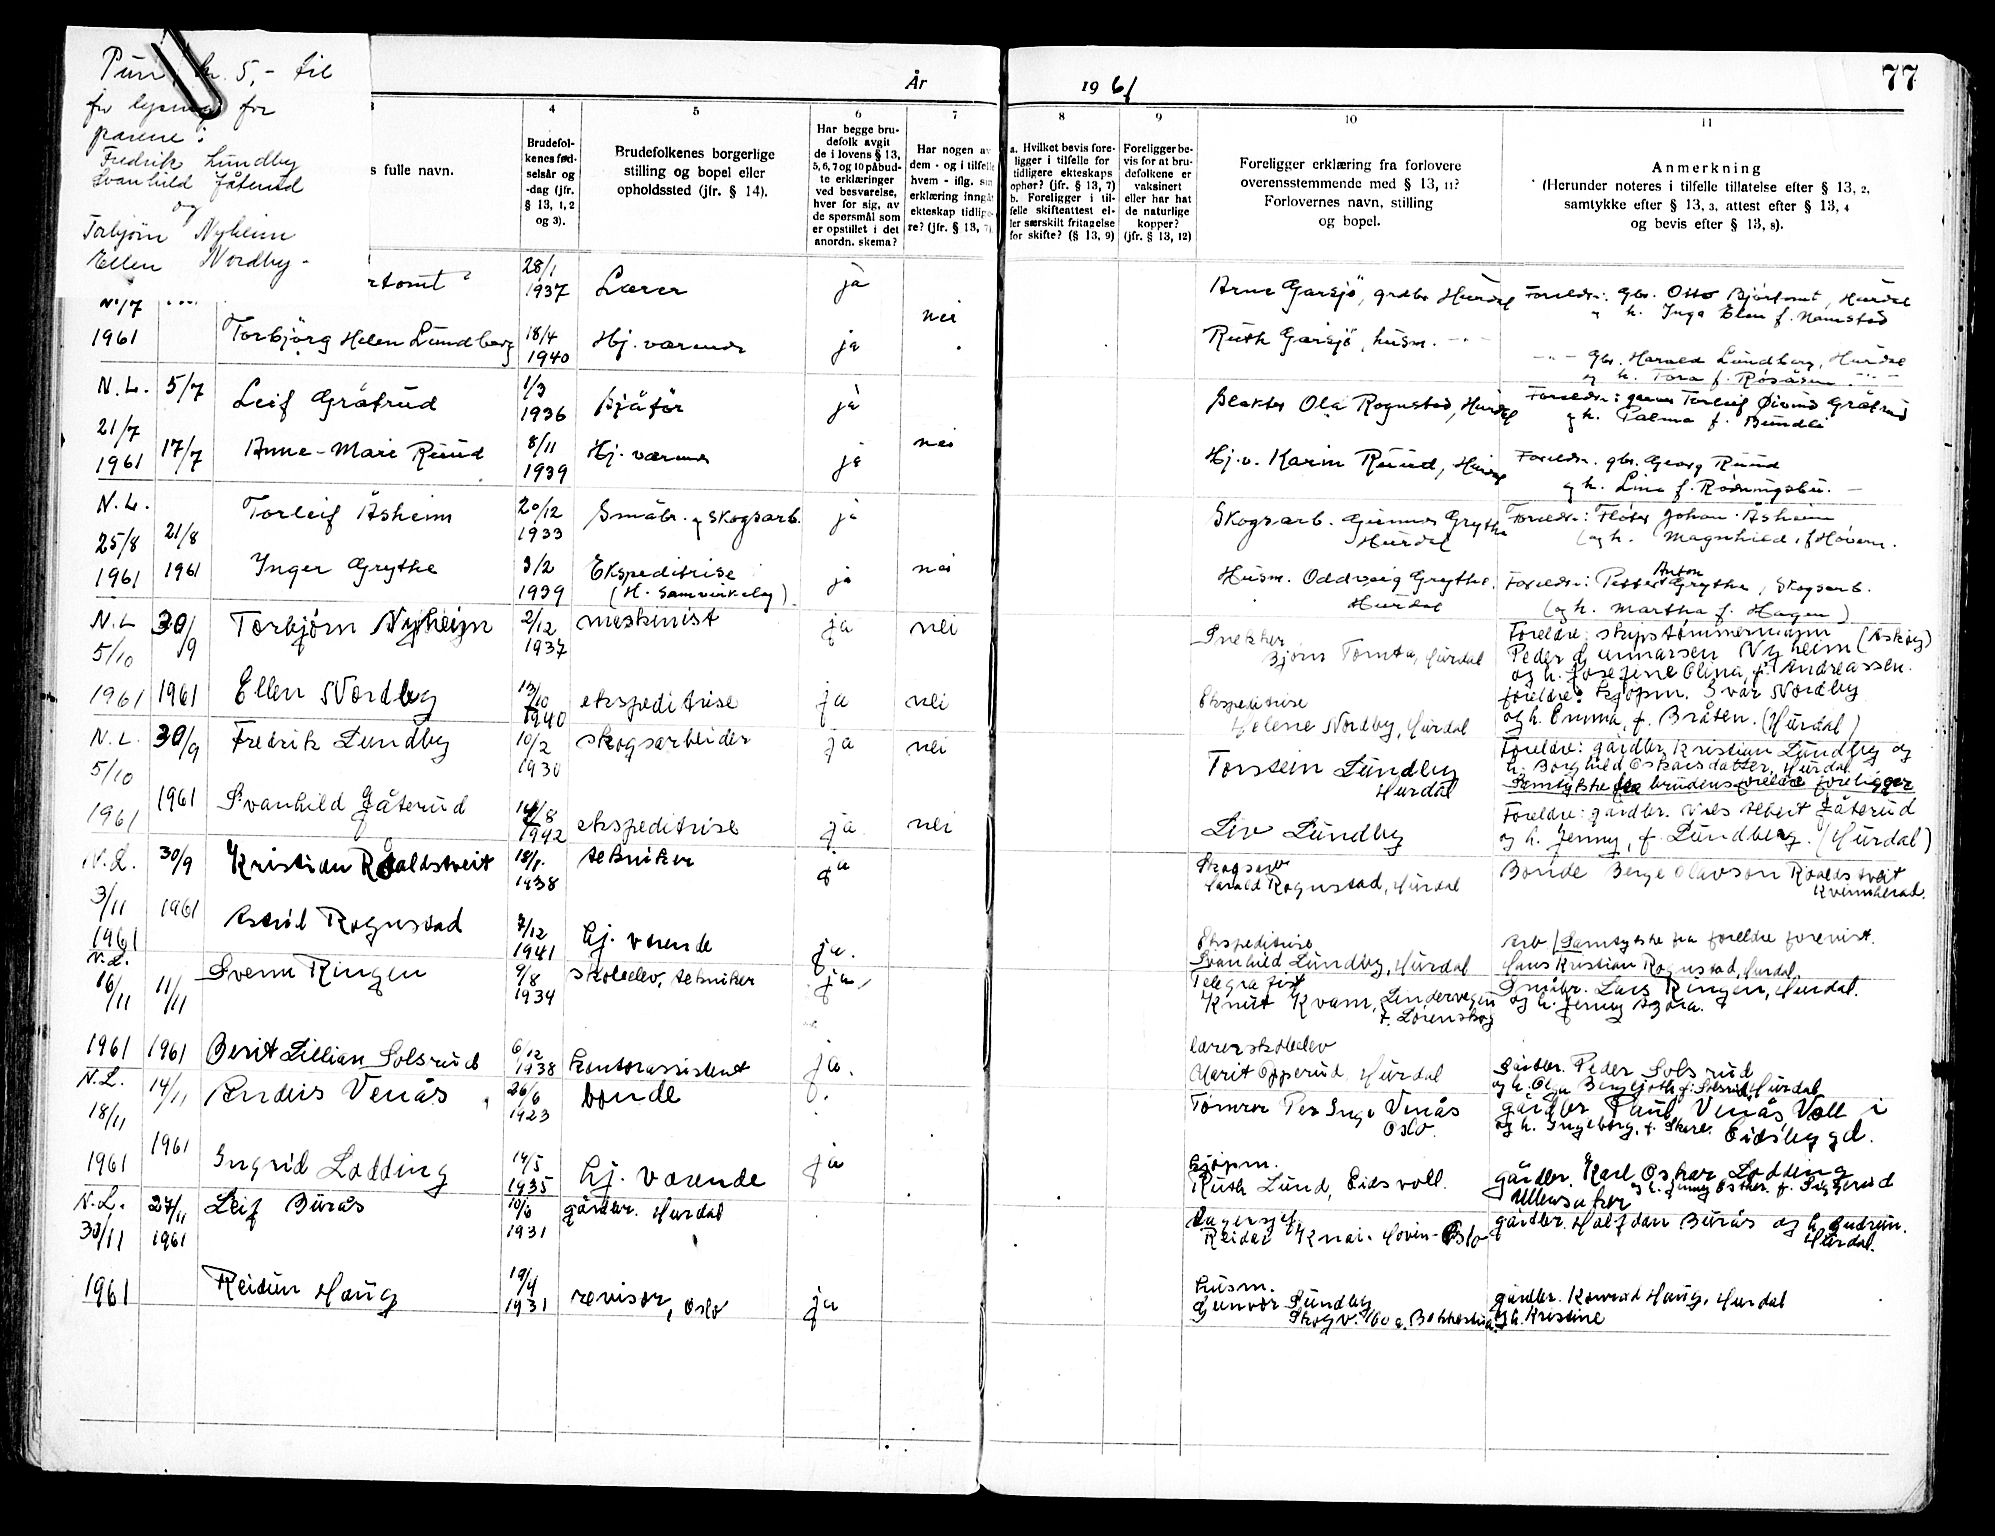 Pun. kr. 5,- til
for lysning for
parene:
Fredrik Lundby
Svanhild Jåterud
og
Torbjørn Nyheim
Ellen Nordby -
År 1961
77
3
s fulle navn.
4
Brudefol-
kenes fød-
selsår og
-dag (jfr.
§ 13, 1, 2
og 3).
5
Brudefolkenes borgerlige
stilling og bopel eller
opholdssted (jfr. § 14).
6
Har begge bru-
defolk avgit
de i lovens § 13,
5, 6, 7 og 10 påbud-
te erklæringer
ved besvarelse,
hver for sig, av
de spørsmål som
er opstillet i det
anordn. skema?
7
Har nogen av
dem - og i tilfelle
hvem - iflg. sin
erklæring inngåt
ekteskap tidlige-
re? (jfr. § 13, 7).
8
a. Hvilket bevis fore-
ligger i tilfelle for
tidligere ekteskaps
ophør? (jfr. § 13, 7)
b. Foreligger i til-
felle skifteattest el-
ler særskilt fritagelse
for skifte? (§ 13, 9)
9
Foreligger be-
vis for at bru-
defolkene er
vaksinert
eller har hat
de naturlige
kopper?
(jfr. § 13, 12)
10
Foreligger erklæring fra forlovere
overensstemmende med § 13, 11?
Forlovernes navn, stilling
og bopel.
11
Anmerkning
(Herunder noteres i tilfelle tillatelse efter § 13, 2,
samtykke efter § 13, 3, attest efter § 13, 4
og bevis efter § 13, 8).
rtomt 28/1 1937 Lærer ja Arne Garsjö, grdbr Hurdal Foreldre: gbr. Otto Bjørtomt, Hurdal
og h. Inga Elen f. Namstad
1961 Torbjörg Helen Lundberg 18/4 1940 Hj. værende ja nei Ruth Garsjö, husm. -"- -"- gbr. Harald Lundberg, Hurdal
og h. Tora f. Røsåsen -"-
N.L. 5/7 Leif Gråtrud 1/3 1936 Sjåför ja Slakter Ola Rognstad, Hurdal Foreldre: Torleif Øivind Gråtrud
og h. Palma f. Bundli
21/7 1961 17/7 Anne-Mari Ruud 8/11 1939 Hj. værende ja nei Hj.v. Karin Ruud, Hurdal Foreldre: gbr. Georg Ruud
og h. Lina f. Rødningsbu.
N.L. 25/8 21/8 Torleif Åsheim 20/12 1933 Småbr. og Skogsarb. ja Skogsarb. Gunnar Grythe Hurdal Foreldre: Fløter Johan Åsheim
(og h. Magnhild, f Høvern.
1961 1961 Inger Grythe 3/2 1939 Ekspeditrise (H. Samvirkelag) ja nei Husm. Oddveig Grythe Hurdal Foreldre: Petter Anton Grythe, Skogsarb.
(og h. Martha f. Hagen)
N.L 5/10 30/9 Torbjørn Nyheim 2/12 1937 maskinist ja nei Snekker Bjørn Tomta, Hurdal Foreldre: skipstømmermann (Askøy)
Peder Gunnarsen Nyheim
og h. Josefine Olina, f. Andreassen.
1961 1961 Ellen Nordby 13/10 1940 ekspeditrise ja nei Ekspeditrise Helene Nordby, Hurdal foreldre: kjøpm. Ivar Nordby
og h. Emma, f. Bråten. (Hurdal)
N.L. 5/10 30/9 Fredrik Lundby 10/2 1930 skogsarbeider ja nei Torstein Lundby Hurdal Foreldre: gårdbr. Kristian Lundby og
h. Borghild Oskarsdatter, Hurdal
Samtykke fra brudens foreldre foreligger
1961 1961 Svanhild Jåterud 14/8 1942 ekspeditrise ja nei Liv Lundby Foreldre: gårdbr. Nils Albert Jåterud
og h. Jenny, f. Lundberg. (Hurdal)
N.L. 3/11 30/9 Kristian Roaldstveit 18/1 1938 tekniker ja Skogsarb Harald Rognstad, Hurdal Bonde Berge Olavson Roaldstveit
Kvinnherad.
1961 1961 Astrid Rognstad 7/12 1941 hj. værende ja. Ekspeditrise Svanhild Lundby, Hurdal Arb / Samtykke fra foreldre forevist.
Hans Kristian Rognstad, Hurdal.
N.L. 16/11 11/11 Svenn Ringen 9/8 1934 skoleelev, tekniker ja, Telegrafist Knut Kvam, Lindervegen Lørenskog Småbr. Lars Ringen, Hurdal.
og h. Jenny Azora.
1961 1961 Berit Lillian Solsrud 6/12 1938 kontorassistent ja. lærerskoleelev Marit Opperud, Hurdal Gårdbr. Peder Solsrud
og h. Olga Bergljoth f. Solsrud, Hurdal
N.L. 18/11 14/11 Anders Venås 26/6 1923 bonde Tømrer Per Inge Venås Oslo. gårdbr Paul Venås, Voll i
og h. Ingeborg, f. Skare. Eidsbygd.
1961 1961 Ingrid Lodding 14/5 1935 hj. værende ja kjøpm. Ruth Lund, Eidsvoll. gårdbr. Karl Oskar Lodding
Ullensaker og h. Jenny Esther. f.
N.L. 30/11 27/11 1961 Leif Burås 10/6 1931 gårdbr. Hurdal Lagersjef Reidar Knai. Hoven - Oslo gårdbr. Halfdan Burås og h. Gudrun.
Hurdal.
1961 Reidun Haug 19/4 1931 revisor, Oslo ja husm. Gunvor Lundby Skogv. 160 a. Bekkestua. gårdbr. Konrad Haug, Hurdal
og h. Kristine